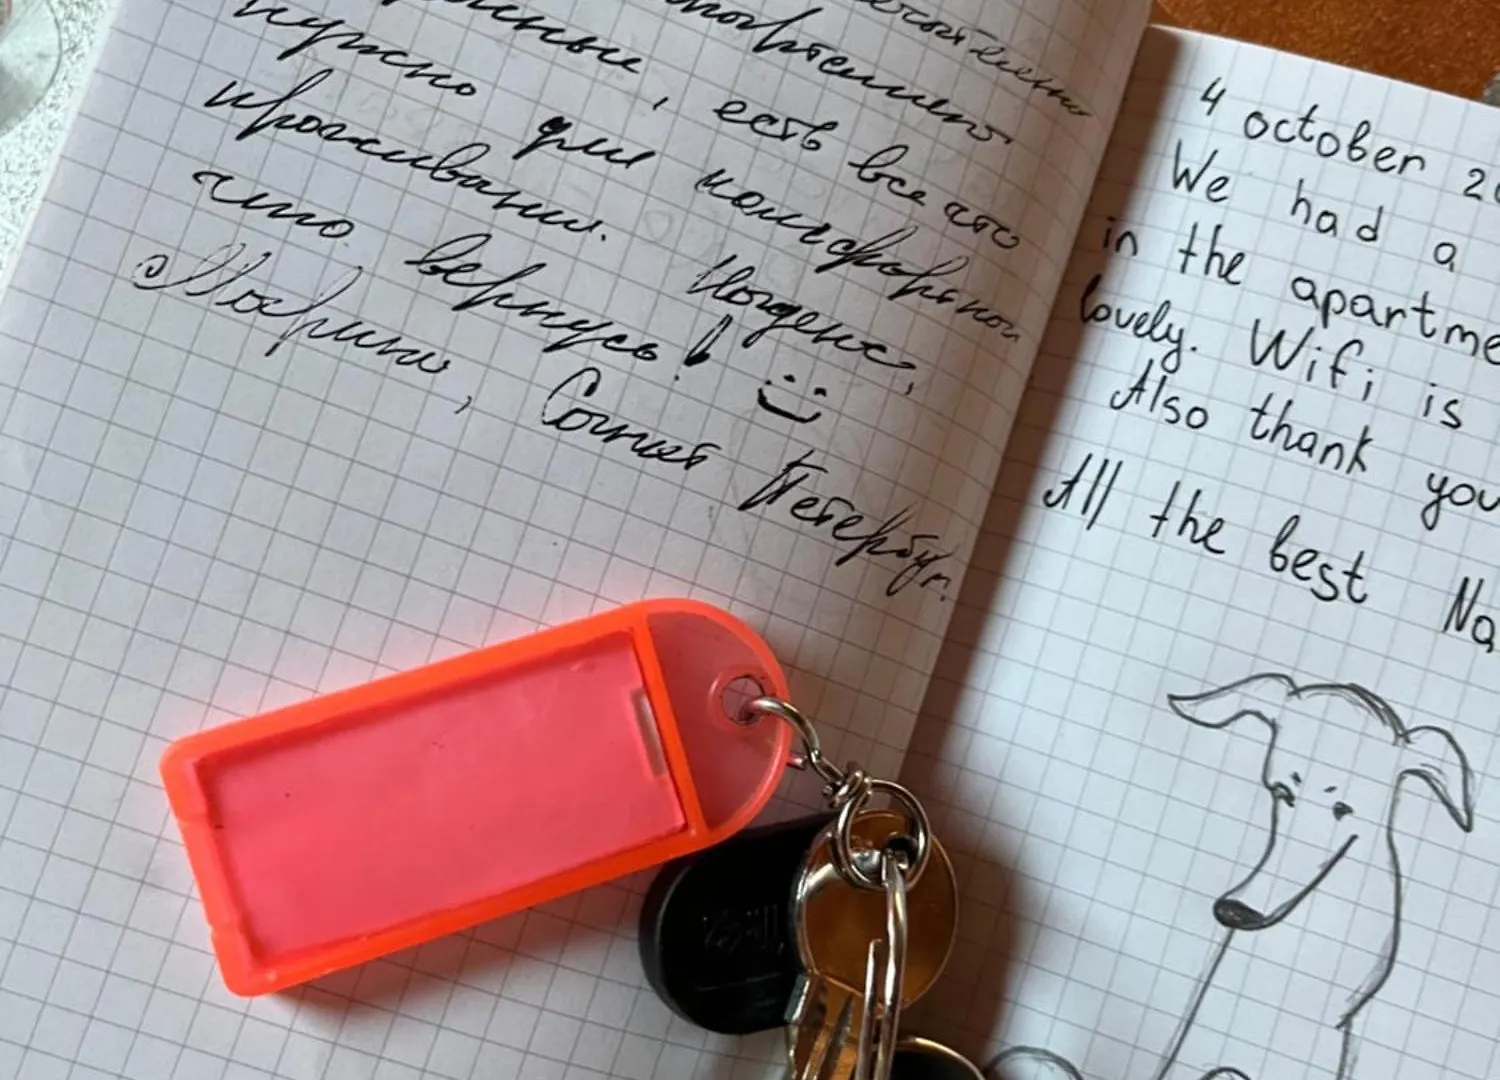 есть все что
нужно для комфортного
проживания. Надеюсь,
что вернусь!
Марина, Санкт Петербург.
4 october 20
We had a
in the apartme
lovely. Wifi is
Also thank you
All the best Na